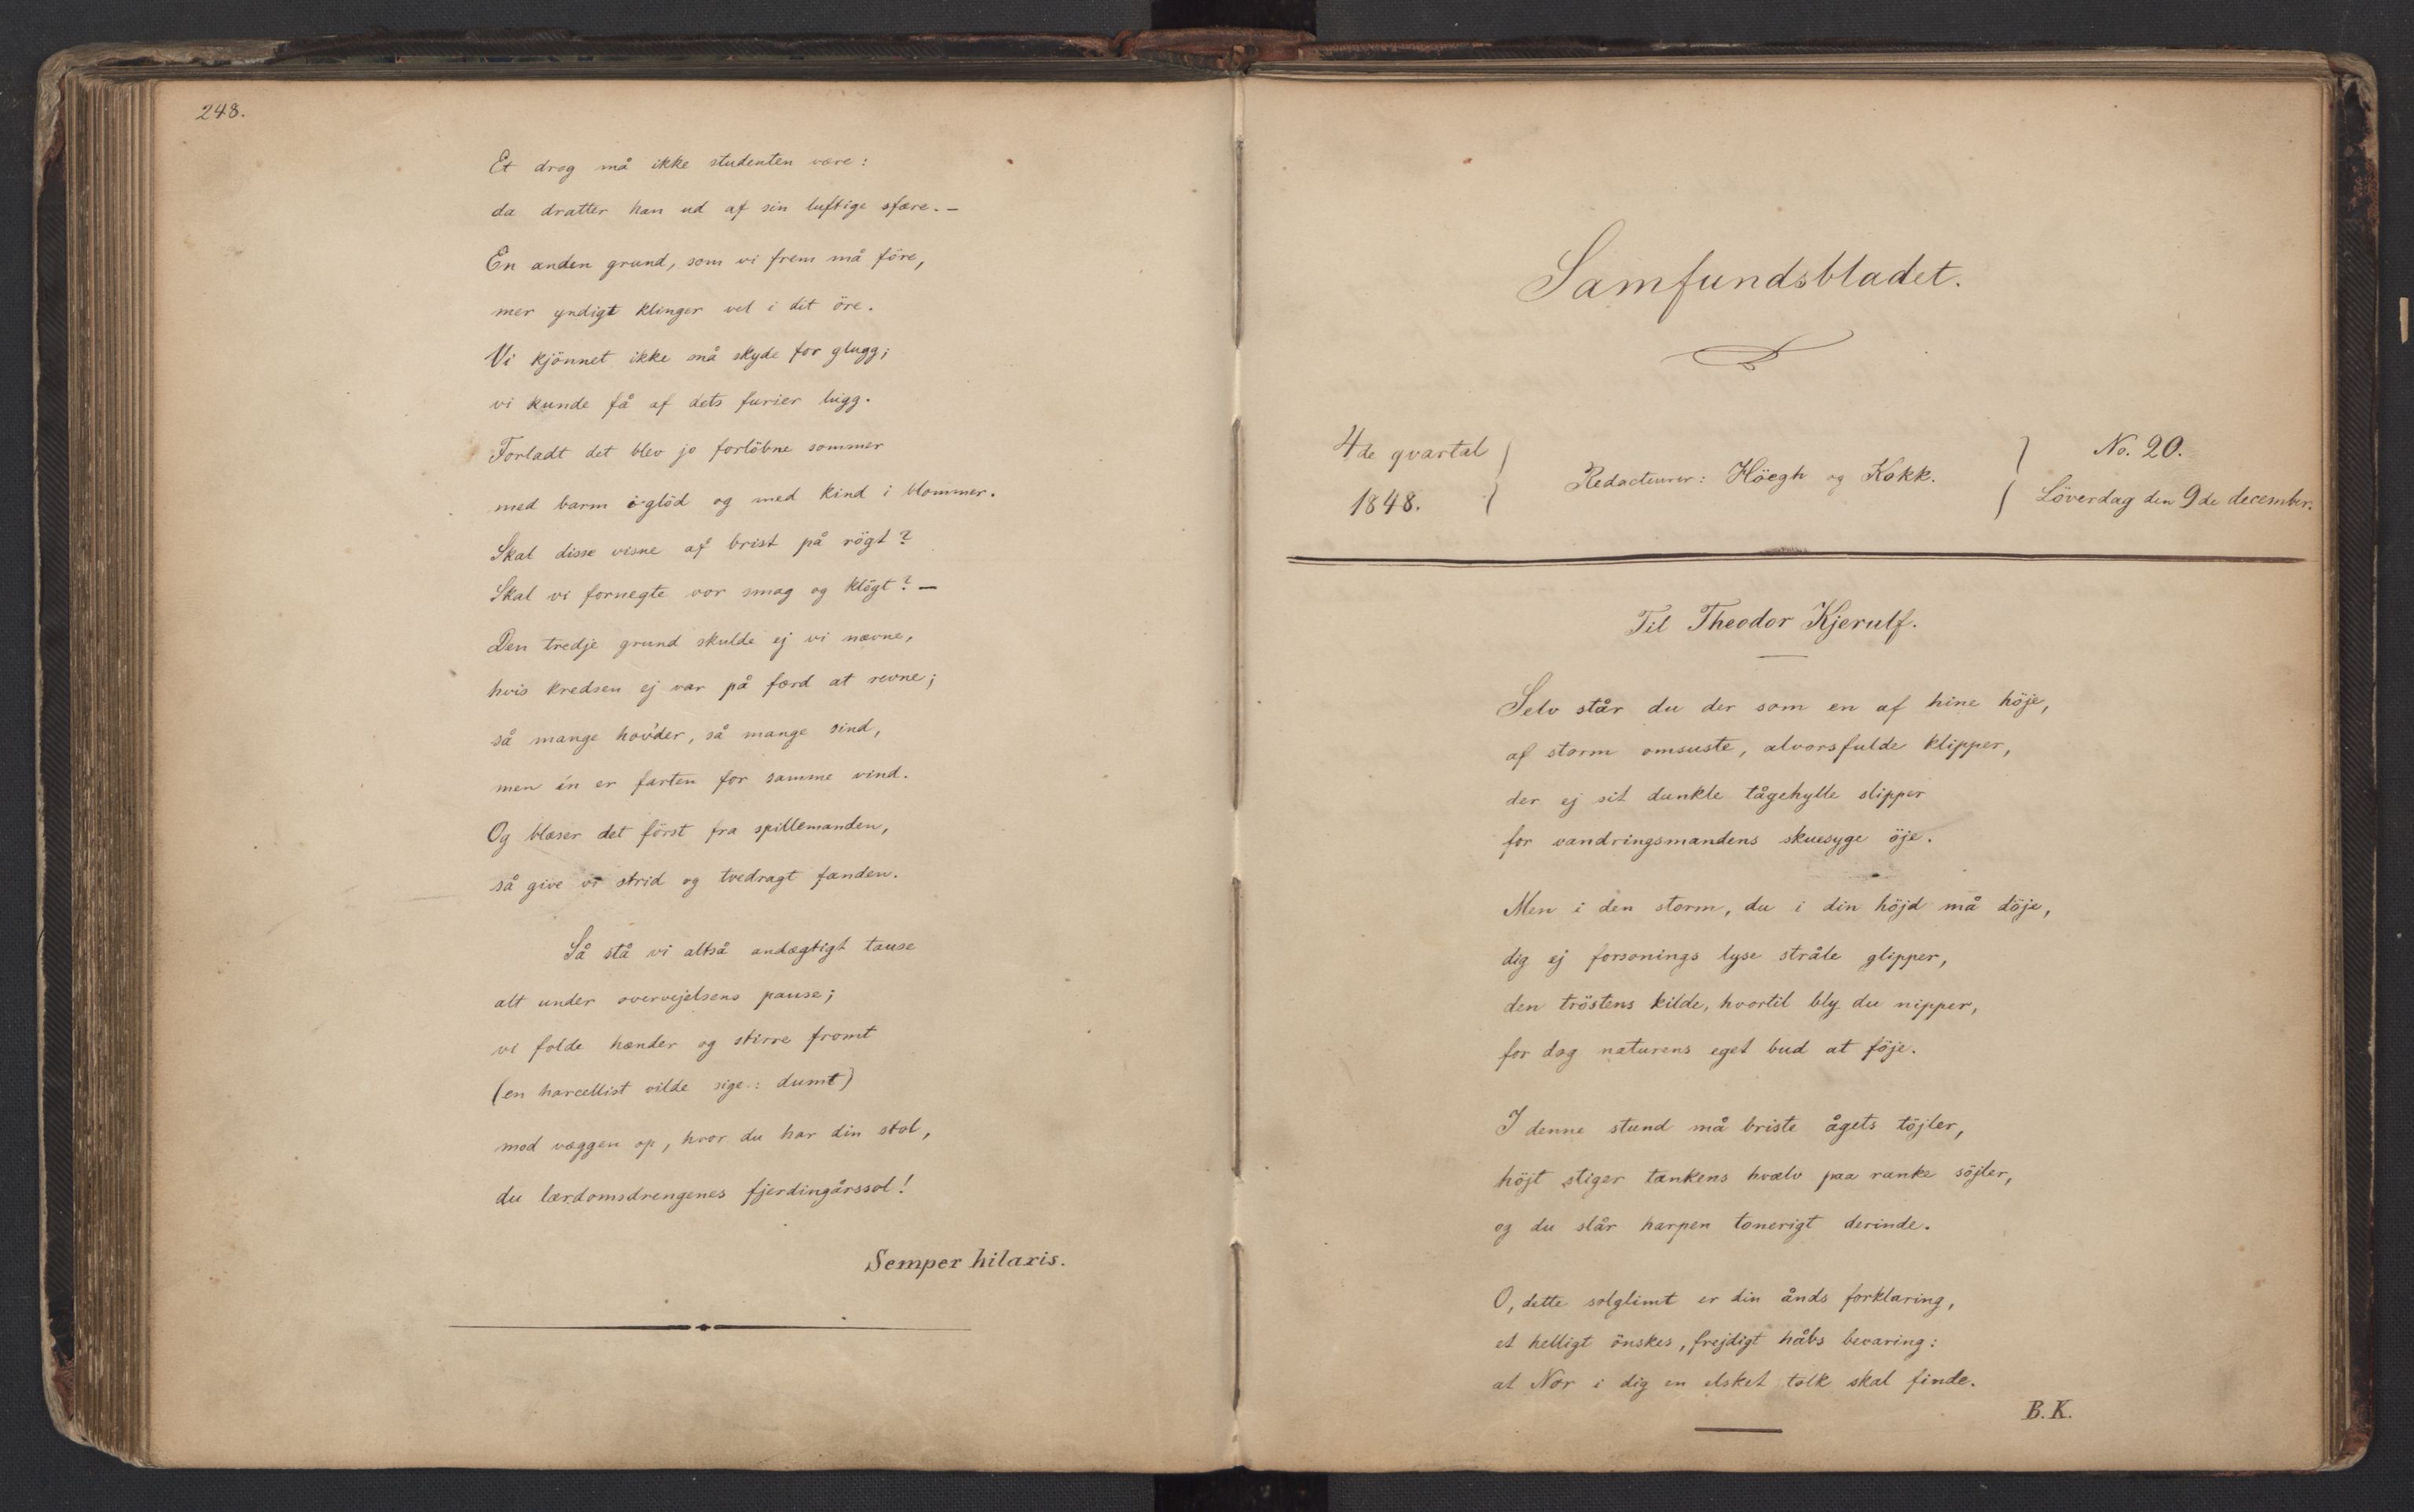 248.
Et drog må ikke studenten være:
da dratter han ud af sin luftige sfære. –
En anden grund, som vi frem må före,
mer yndigt klinger vel i dit öre.
Vi kjönnet ikke må skyde for glugg;
vi kunde få af dets furier lugg.
Forladt det blev jo forlöbne sommer
med barm i glöd og med kind i blommer.
Skal disse visne af brist på rögt?
Skal vi fornegte vor smag og klögt? –
Den tredje grund skulde ej vi nævne,
hvis kredsen ej var på færd at revne;
så mange hov'der, så mange sind,
men én er farten for samme vind.
Og blæser det först fra spillemanden,
så give vi strid og tvedragt fanden.
Så stå vi altså andægtigt tause
alt under overvejelsens pause;
vi folde hænder og stirre fromt
(en harcellist vilde sige: dumt)
mod væggen op, hvor du har din stol,
du lærdomsdrengenes fjerdingårssol!
Semper hilaris.
Samfundsbladet.
4de qvartal
1848.
Redacteurer: Höegh og Kokk.
No. 20.
Löverdag den 9de december.
Til Theodor Kjerulf.
Selv står du der som en af hine höje,
af storm omsuste, alvorsfulde klipper,
der ej sit dunkle tågehylle slipper
for vandringsmandens skuesyge öje.
Men i den storm, du i din höjd må döje,
dig ej forsonings lyse stråle glipper,
den tröstens kilde, hvortil bly du nipper,
for dog naturens eget bud at föje.
I denne stund må briste ågets töjler,
höjt stiger tankens hvælv paa ranke söjler,
og du slår harpen tonerigt derinde.
O, dette solglimt er din ånds forklaring,
et helligt önskes, frejdigt håbs bevaring:
at Nor i dig en elsket tolk skal finde.
B. K.